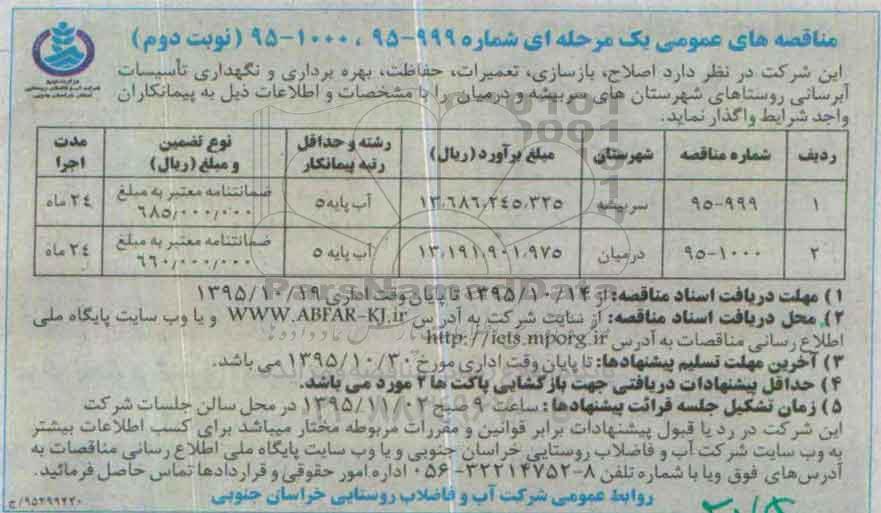 مناقصه های عمومی یک مرحله ای شماره ۹۹۹-۹۵ ، ۱۰۰۰-۹۵ (نوبت دوم)
این شرکت در نظر دارد اصلاح، بازسازی، تعمیرات، حفاظت، بهره برداری و نگهداری تأسیسات
آبرسانی روستاهای شهرستان های سربیشه و درمیان را با مشخصات و اطلاعات ذیل به پیمانکاران
واجد شرایط واگذار نماید.
ردیف شماره مناقصه شهرستان مبلغ برآورد (ریال) رشته و حداقل رتبه پیمانکار نوع تضمین و مبلغ (ریال) مدت اجرا
۱ ۹۵-۹۹۹ سربیشه ۱۳,۶۸۶,۲۴۵,۳۲۵ آب پایه ۵ ضمانتنامه معتبر به مبلغ ۶۸۵/۰۰۰/۰۰۰ ۲۴ ماه
۲ ۹۵-۱۰۰۰ درمیان ۱۳,۱۹۱,۹۰۱,۹۷۵ آب پایه ۵ ضمانتنامه معتبر به مبلغ ۶۶۰/۰۰۰/۰۰۰ ۲۴ ماه
۱) مهلت دریافت اسناد مناقصه: از ۱۳۹۵/۱۰/۱۴ تا پایان وقت اداری ۱۳۹۵/۱۰/۱۹
۲) محل دریافت اسناد مناقصه: از سایت شرکت به آدرس WWW.ABFAR-KJ.ir و یا وب سایت پایگاه ملی
اطلاع رسانی مناقصات به آدرس http://iets.mporg.ir
۳) آخرین مهلت تسلیم پیشنهادها: تا پایان وقت اداری مورخ ۱۳۹۵/۱۰/۳۰ می باشد.
۴) حداقل پیشنهادات دریافتی جهت بازگشایی پاکت ها ۲ مورد می باشد.
۵) زمان تشکیل جلسه قرائت پیشنهادها: ساعت ۹ صبح ۱۳۹۵/۱۱/۰۲ در محل سالن جلسات شرکت
این شرکت در رد یا قبول پیشنهادات برابر قوانین و مقررات مربوطه مختار میباشد برای کسب اطلاعات بیشتر
به وب سایت شرکت آب و فاضلاب روستایی خراسان جنوبی و یا وب سایت پایگاه ملی اطلاع رسانی مناقصات به
آدرس های فوق ویا با شماره تلفن ۸-۳۲۲۱۴۷۵۲-۰۵۶ اداره امور حقوقی و قراردادها تماس حاصل فرمائید.
روابط عمومی شرکت آب و فاضلاب روستایی خراسان جنوبی
۹۵۲۹۹۲۲۰/ج
ParsNamadData